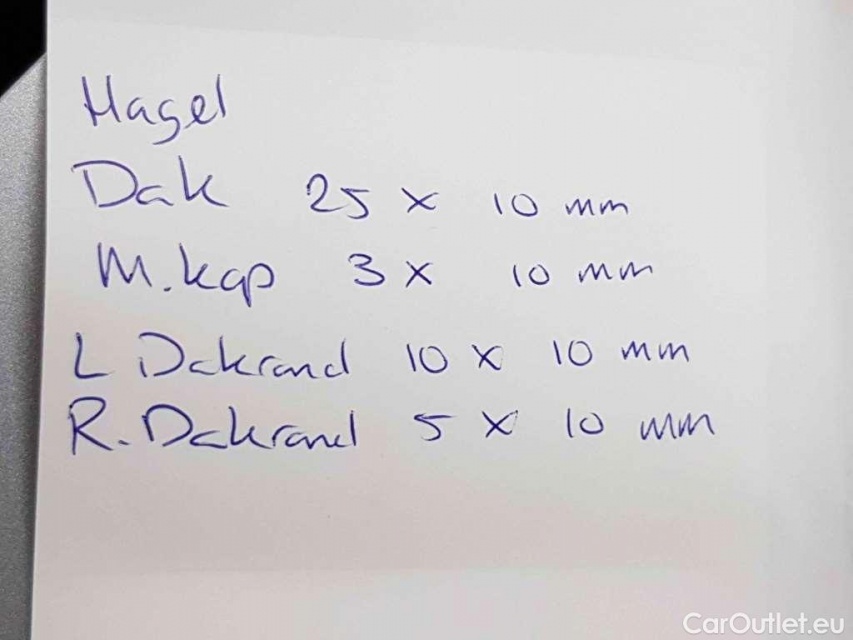 Hagel
Dak 25 x 10 mm
M.kap 3 x 10 mm
L Dakrand 10 x 10 mm
R. Dakrand 5 x 10 mm
CarOutlet.eu